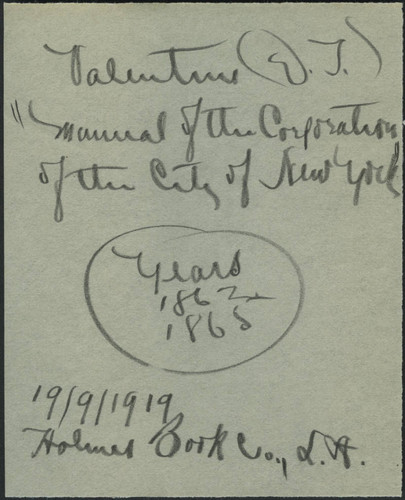 Valentine (D. T.)
"Manual of the Corporation
of the City of New York
Years
1862
1865
19/9/1919
Holmes Book Co., L.A.